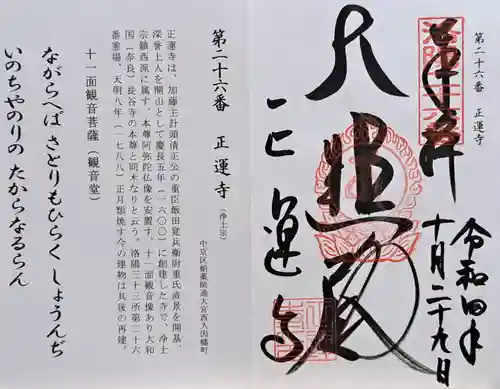 第二十六番 正運寺
奉拝
令和四年
十月二十九日
大悲殿
正運寺
第二十六番 正運寺(浄土宗)
中京区蛸薬師通大宮西入因幡町
正運寺は、加藤主計頭清正公の重臣飯田覚兵衛尉重氏直景を開基、
深誉上人を開山として慶長五年(一六〇〇)に創建した寺で、浄土
宗鎮西派に属す、本尊阿弥陀仏像を安置す、十一面観音像あり大和
国(奈良)長谷寺の本尊と同木なりと云う。洛陽三十三所第二十六
番霊場、天明八年(一七八八)正月類焼す今の建物は其後の再建。
十一面観音菩薩(観音堂)
ながらへば さとりもひらく しょうんぢ
いのちやのりの たからなるらん